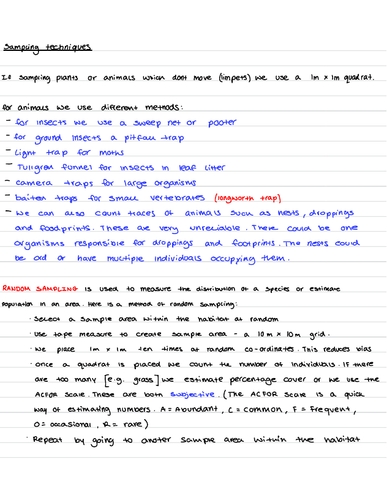 Sampling techniques
If sampling plants or animals which dont move (limpets) we use a 1m x 1m quadrat.
for animals we use different methods:
- for insects we use a sweep net or pooter
- for ground insects a pitfall trap
- Light trap for moths
- Tullgren funnel for insects in leaf litter
- camera traps for large organisms
- baiten traps for small vertebrates (longworth trap)
- we can also count traces of animals such as nests, droppings
and foodprints. These are very unreliable. There could be one
organisms responsible for droppings and footprints. The nests could
be old or have multiple individuals occupying them.
RANDOM SAMPLING is used to measure the distribution of a species or estimate
population in an area. Here is a method of random sampling:
· Select a sample area within the habitat at random
· Use tape measure to create sample area - a 10m x 10m grid.
· We place 1m x 1m ten times at random co-ordinates. This reduces bias
· once a quadrat is placed we count the number of individuals. If there
are too many [e.g. grass] we estimate percentage cover or we use the
ACFOR scale. These are both subjective. (The ACFOR scale is a quick
way of estimating numbers. A = Abundant, C = common, F = frequent,
O = occasional, R = rare)
· Repeat by going to another sample area within the habitat